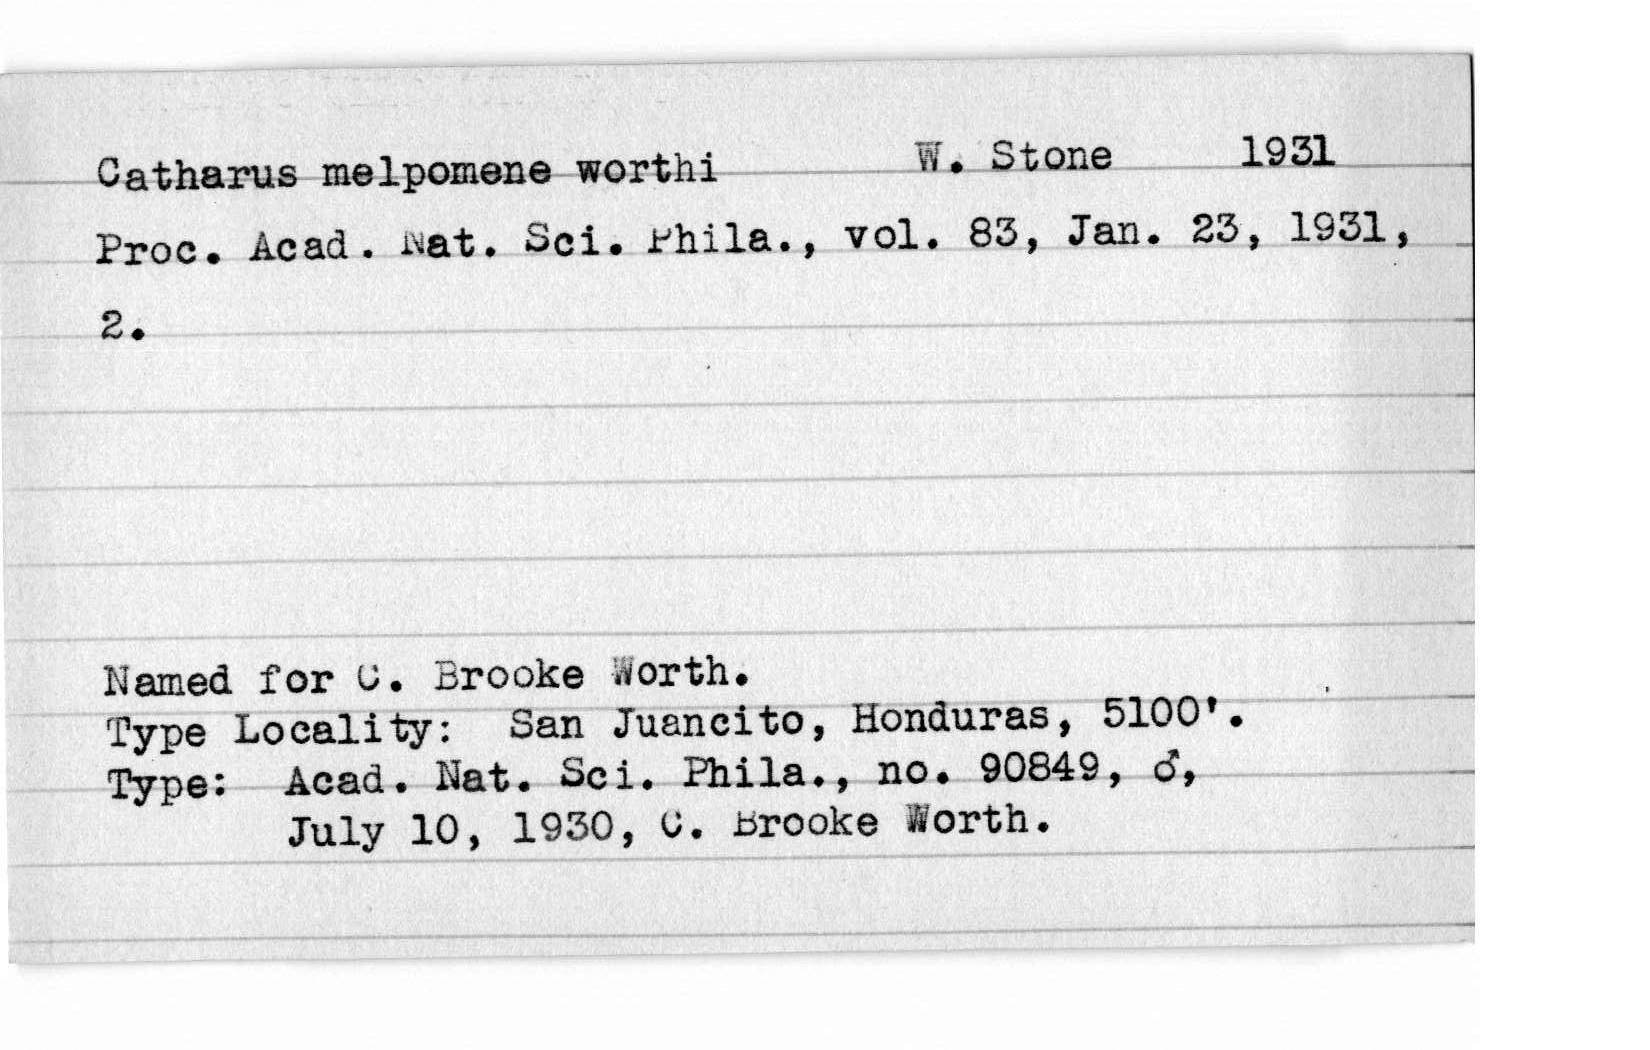 Catharus melpomene worthi W. Stone 1931
Proc. Acad. Nat. Sci. Phila., vol. 83, Jan. 23, 1931,
2.
Named for C. Brooke Worth.
Type Locality: San Juancito, Honduras, 5100'.
Type: Acad. Nat. Sci. Phila., no. 90849, ♂,
July 10, 1930, C. Brooke Worth.